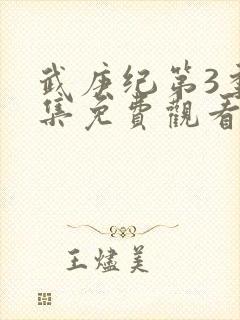 武庚纪第3季
集免費觀看
王燼美